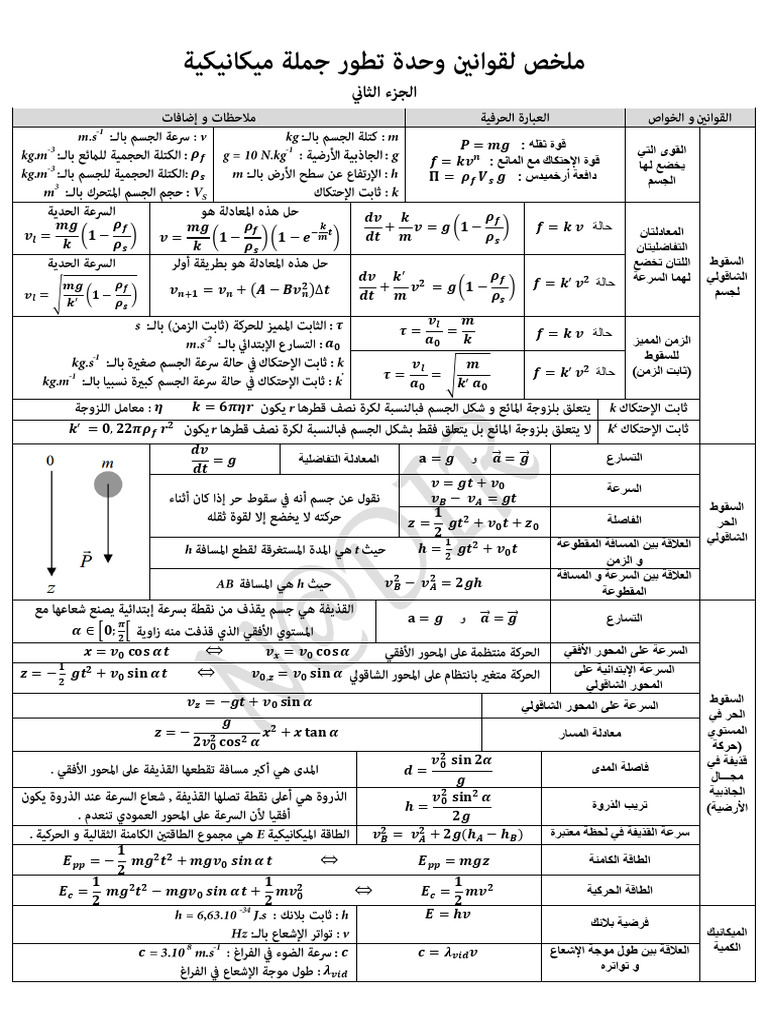 ملخص لقوانين وحدة تطور جملة ميكانيكية
الجزء الثاني
القوانين و الخواص العبارة الحرفية ملاحظات و إضافات
السقوط الشاقولي لجسم
القوى التي يخضع لها الجسم
قوة ثقله : P = mg
قوة الإحتكاك مع المائع : f = kvⁿ
دافعة أرخميدس : Π = ρ_f V_s g
m : كتلة الجسم بالـ: kg
g : الجاذبية الأرضية : g = 10 N.kg⁻¹
h : الإرتفاع عن سطح الأرض بالـ: m
k : ثابت الإحتكاك
v : سرعة الجسم بالـ: m.s⁻¹
ρ_f : الكتلة الحجمية للمائع بالـ: kg.m⁻³
ρ_s : الكتلة الحجمية للجسم بالـ: kg.m⁻³
V_S : حجم الجسم المتحرك بالـ: m³
المعادلتان التفاضليتان اللتان تخضع لهما السرعة
حالة f = k v
dv/dt + (k/m) v = g (1 − ρ_f/ρ_s)
حل هذه المعادلة هو
v = (mg/k)(1 − ρ_f/ρ_s)(1 − e^(−(k/m)t))
السرعة الحدية
v_l = (mg/k)(1 − ρ_f/ρ_s)
حالة f = k′ v²
dv/dt + (k′/m) v² = g (1 − ρ_f/ρ_s)
حل هذه المعادلة هو بطريقة أولر
v_{n+1} = v_n + (A − Bv_n²)Δt
السرعة الحدية
v_l = √((mg/k′)(1 − ρ_f/ρ_s))
الزمن المميز للسقوط (ثابت الزمن)
حالة f = k v
τ = v_l/a₀ = m/k
حالة f = k′ v²
τ = v_l/a₀ = √(m/(k′ a₀))
τ : الثابت المميز للحركة (ثابت الزمن) بالـ: s
a₀ : التسارع الإبتدائي بالـ: m.s⁻²
k : ثابت الإحتكاك في حالة سرعة الجسم صغيرة بالـ: kg.s⁻¹
k′ : ثابت الإحتكاك في حالة سرعة الجسم كبيرة نسبيا بالـ: kg.m⁻¹
ثابت الإحتكاك k يتعلق بلزوجة المائع و شكل الجسم فبالنسبة لكرة نصف قطرها r يكون k = 6πηr η : معامل اللزوجة
ثابت الإحتكاك k‘ لا يتعلق بلزوجة المائع بل يتعلق فقط بشكل الجسم فبالنسبة لكرة نصف قطرها r يكون k′ = 0, 22πρ_f r²
السقوط الحر الشاقولي
التسارع a⃗ = g⃗ و a = g
المعادلة التفاضلية dv/dt = g
السرعة
v = gt + v₀
v_B − v_A = gt
نقول عن جسم أنه في سقوط حر إذا كان أثناء
حركته لا يخضع إلا لقوة ثقله
الفاصلة z = 1/2 gt² + v₀t + z₀
العلاقة بين المسافة المقطوعة و الزمن h = 1/2 gt² + v₀t حيث t هي المدة المستغرقة لقطع المسافة h
العلاقة بين السرعة و المسافة المقطوعة v_B² − v_A² = 2gh حيث h هي المسافة AB
0 m
P⃗
z
السقوط الحر في المستوي (حركة قذيفة في مجـــال الجاذبية الأرضية)
التسارع a⃗ = g⃗ و a = g
القذيفة هي جسم يقذف من نقطة بسرعة إبتدائية يصنع شعاعها مع
المستوي الأفقي الذي قذفت منه زاوية α ∈ [0; π/2[
السرعة على المحور الأفقي الحركة منتظمة على المحور الأفقي v_x = v₀ cos α ⇔ x = v₀ cos α t
السرعة الإبتدائية على المحور الشاقولي الحركة متغير بانتظام على المحور الشاقولي v₀.z = v₀ sin α ⇔ z = −1/2 gt² + v₀ sin α t
السرعة على المحور الشاقولي v_z = −gt + v₀ sin α
معادلة المسار z = − g/(2v₀² cos² α) x² + x tan α
فاصلة المدى d = v₀² sin 2α / g المدى هي أكبر مسافة تقطعها القذيفة على المحور الأفقي .
ترتيب الذروة h = v₀² sin² α / 2g
الذروة هي أعلى نقطة تصلها القذيفة , شعاع السرعة عند الذروة يكون
أفقيا لأن السرعة على المحور العمودي تنعدم .
سرعة القذيفة في لحظة معتبرة v_B² = v_A² + 2g(h_A − h_B) الطاقة الميكانيكية E هي مجموع الطاقتين الكامنة الثقالية و الحركية .
الطاقة الكامنة E_pp = mgz ⇔ E_pp = −1/2 mg²t² + mgv₀ sin α t
الطاقة الحركية E_c = 1/2 mv² ⇔ E_c = 1/2 mg²t² − mgv₀ sin α t + 1/2 mv₀²
الميكانيك الكمية
فرضية بلانك E = hν
h : ثابت بلانك : h = 6,63.10⁻³⁴ J.s
ν : تواتر الإشعاع بالـ: Hz
العلاقة بين طول موجة الإشعاع و تواتره c = λ_vid ν
c : سرعة الضوء في الفراغ : c = 3.10⁸ m.s⁻¹
λ_vid : طول موجة الإشعاع في الفراغ
N@DIR